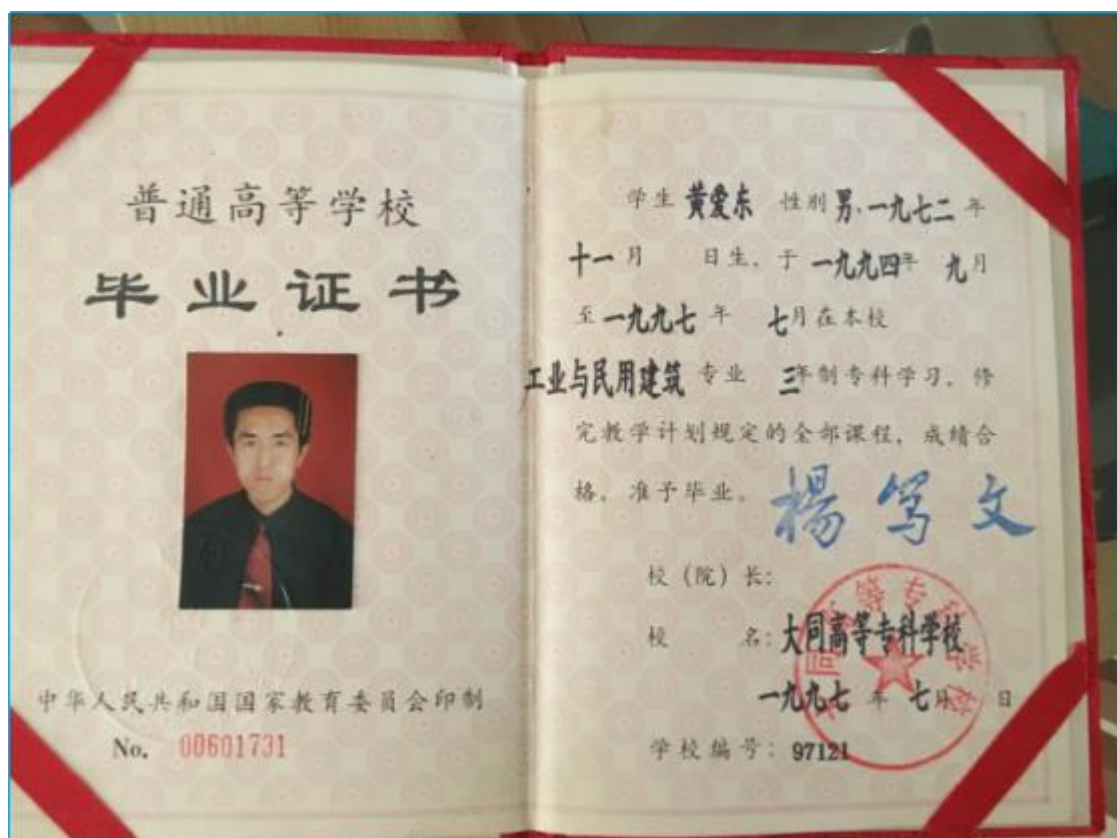 普通高等学校
毕业证书
中华人民共和国国家教育委员会印制
No. 00601731
学生 黄爱东 性别 男,一九七二 年
十一 月 日生, 于 一九九四 年 九 月
至 一九九七 年 七 月在本校
工业与民用建筑 专业 三 年制专科学习, 修
完教学计划规定的全部课程, 成绩合
格, 准予毕业。
楊笃文
校(院)长:
校 名: 大同高等专科学校
一九九七 年 七 月 日
学校编号: 97121
大同高等专科学校